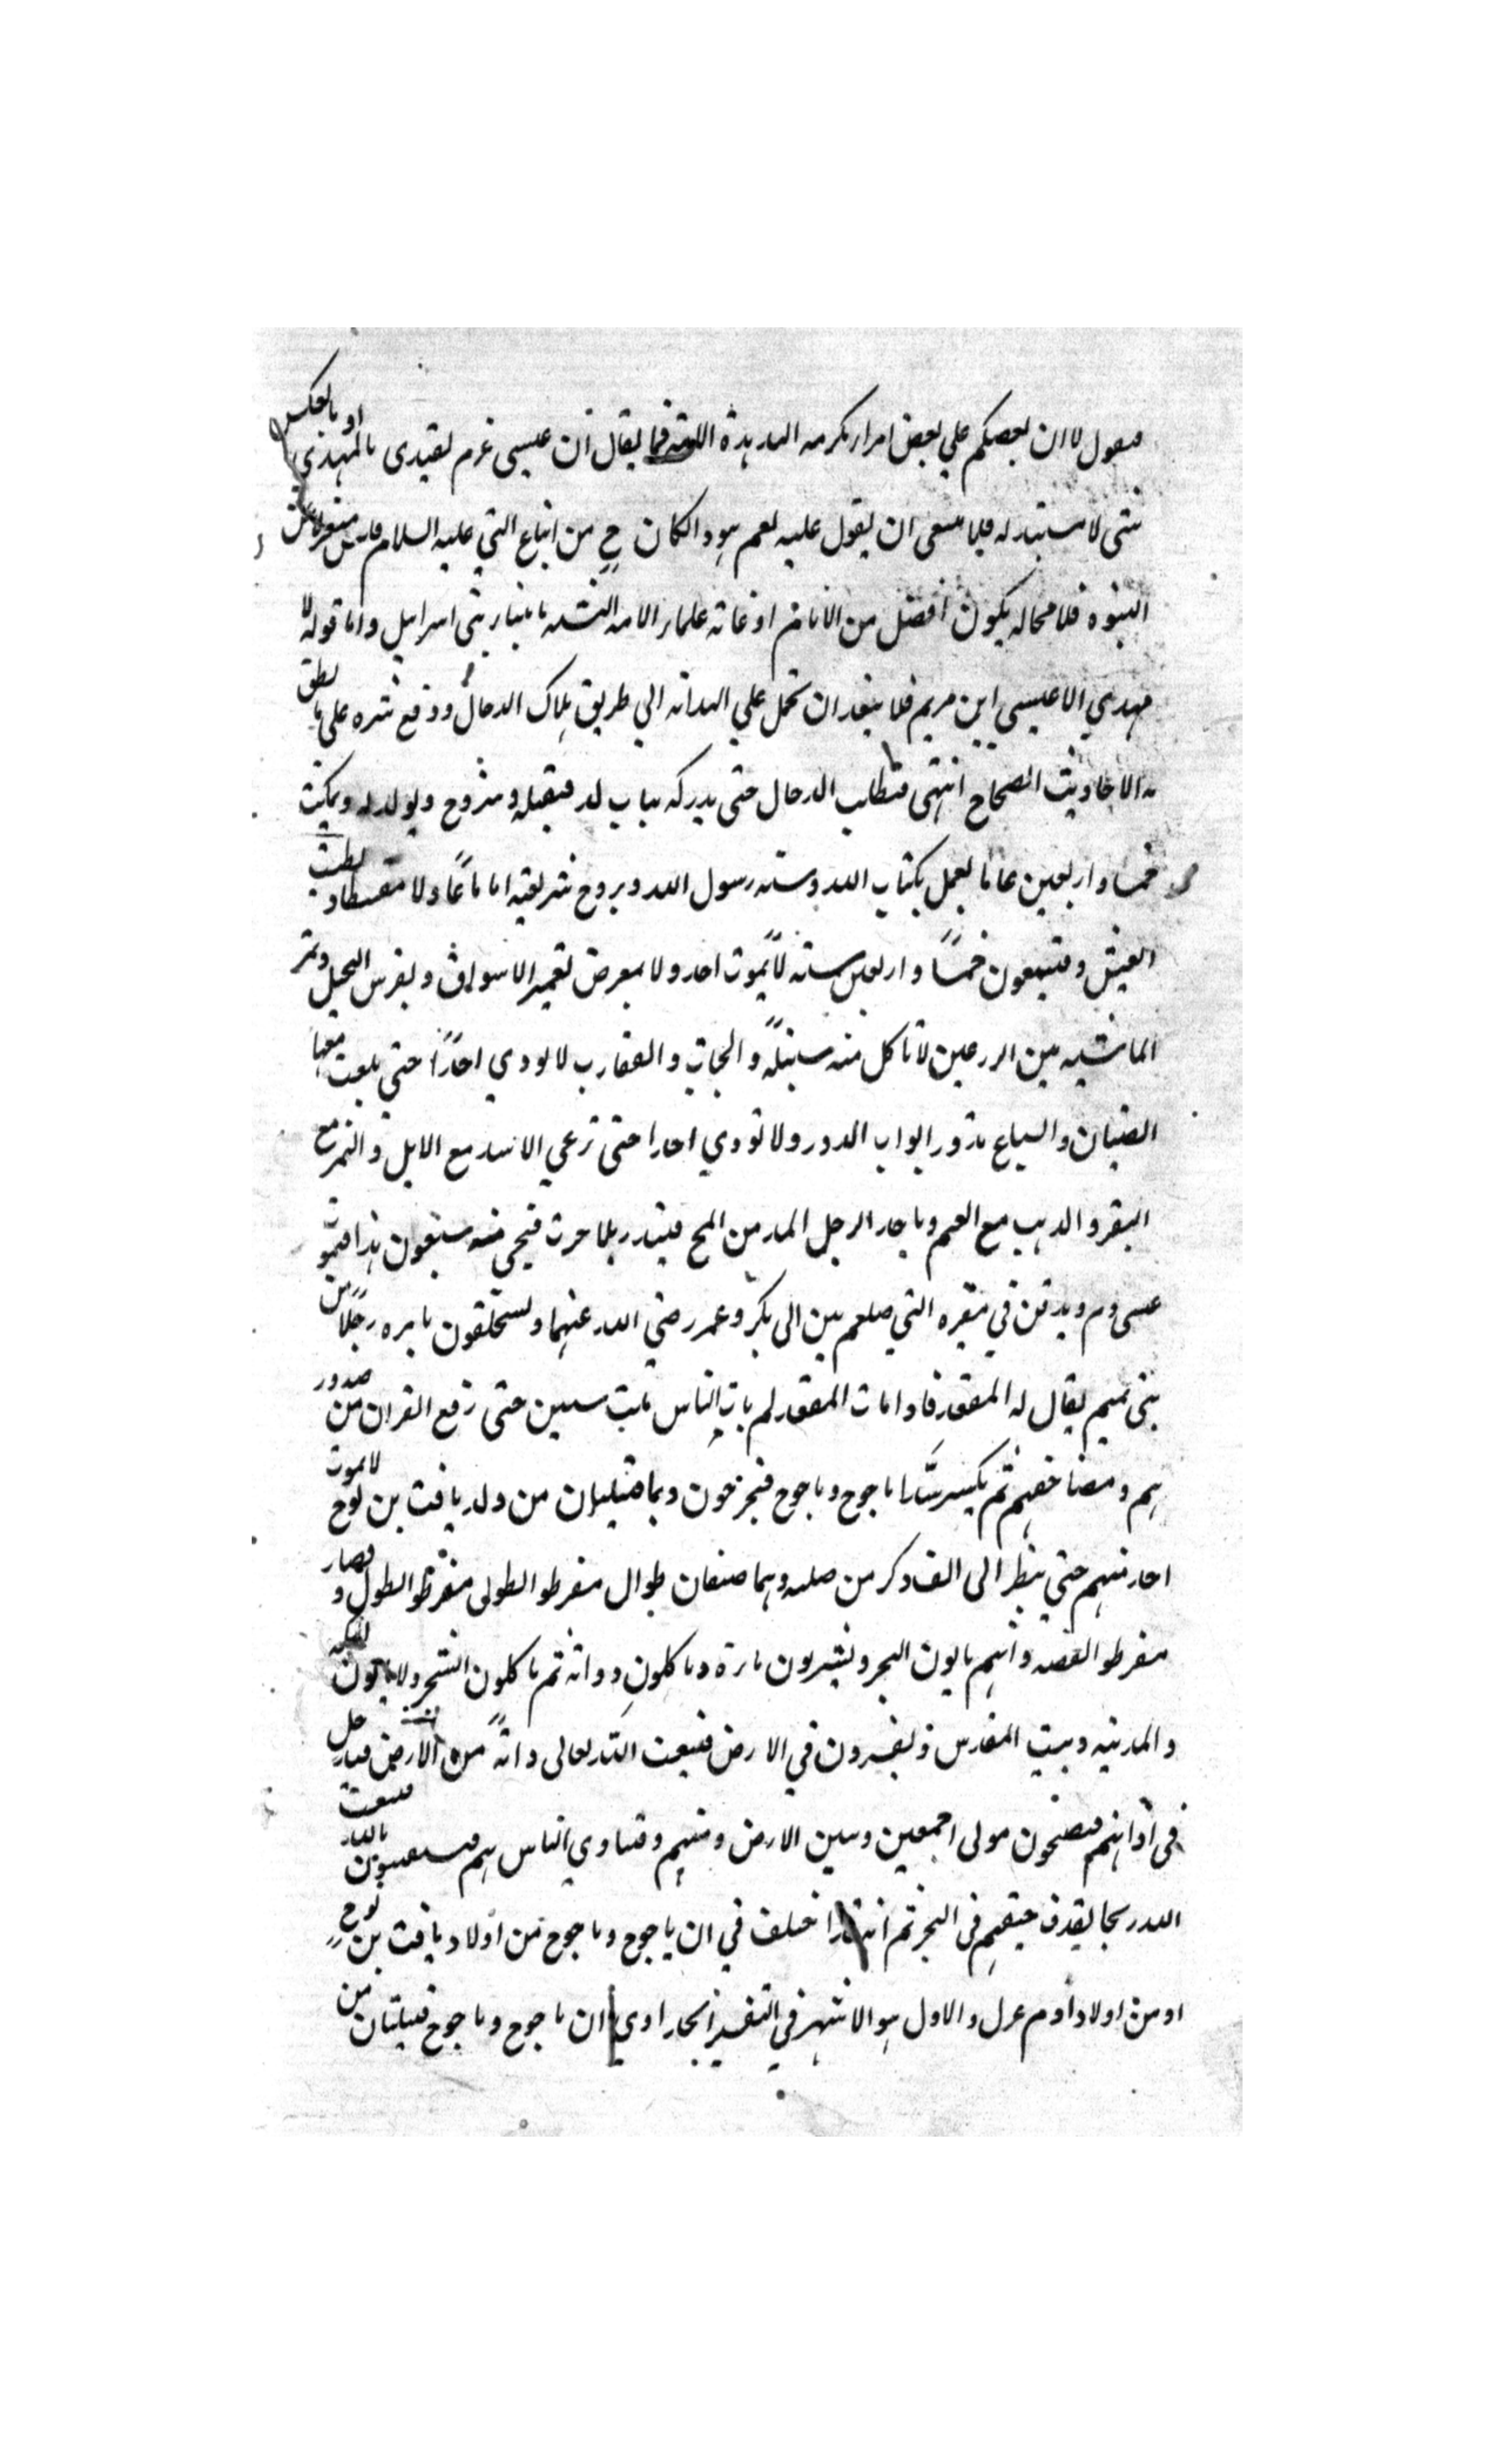 فيقول لا ان بعضكم علي بعض امراء تكرمة الله هذه الامة فما يقال ان عيسى عزم يقتدى بالمهدي او بالعكس
شئ لا مستند له فلا ينبغى ان يقول عليه نعم هو وان كان ح من اتباع النبي عليه السلام فليس منعزلا عن
النبوه فلا محاله يكون افضل من الامام اذ غاية علماء الامه التشبه بانبياء بنى اسرايل واما قوله لا
مهدي الا عيسى ابن مريم فلا يبعد ان تحمل علي الهداية الي طريق هلاك الدجال ودفع شره علي ما نطق
به الاحاديث الصحاح انتهى فيطلب الدجال حتى يدركه بباب لد فيقتله ويتزوج ويولد له ويمكث
خمسا واربعين عاما يعمل بكتاب الله وسنة رسول الله ويروج شريعته اماما عادلا مقسطا ويطيب
العيش ويتبعون خمسًا واربعين سنة لا يموت احد ولا يمرض لتعمير الاسواق ويغرس النخيل وتمر
الماشيه بين الزرعين لا تاكل منه سنبلة والحيات والعقارب لا يوذي احدًا حتى يلعب معها
الصبيان والسباع تدور ابواب الدور ولا توذي احدا حتى ترعي الاسد مع الابل والنمر مع
البقر والذيب مع الغنم وياخذ الرجل المد من القمح فيبذر بلا حرث فيجي منه سبعون مدا فيموت
عيسى وم ويدفن في مقبره النبي صلعم بين ابى بكر وعمر رضي الله عنهما ويستخلفون بامره رجلًا من
بنى تميم يقال له المقعد فاذا مات المقعد لم يات الناس ثلث سنين حتى رفع القران من صدور
هم ومصاحفهم ثم يكسر سد ياجوج وماجوج فيخرجون وهما قبيلتان من ولد يافث بن نوح لا يموت
احد منهم حتى ينظر الى الف ذكر من صلبه وهما صنفان طوال مفرطو الطولى مفرطو الطول وقصار
مفرطو القصر وانهم ياتون البحر ويشربون ماءه وياكلون دوابه ثم ياكلون الشجر ولا ياتون المكه
والمدينه وبيت المقدس ويفسدون في الارض فيبعث الله تعالى دابة من الارض فيدخل
فى آذانهم فيصبحون موتى اجمعين وبين الارض ومنهم وتاذي الناس بهم فيستغيثون بالله فيبعث
الله ريحا يقذف جيفهم فى البحر ثم اختلف في ان ياجوج وماجوج من اولاد يافث بن نوح
او من اولاد آدم عزل والاول هو الاشهر في التفسير ان ياجوج وماجوج قبيلتان من